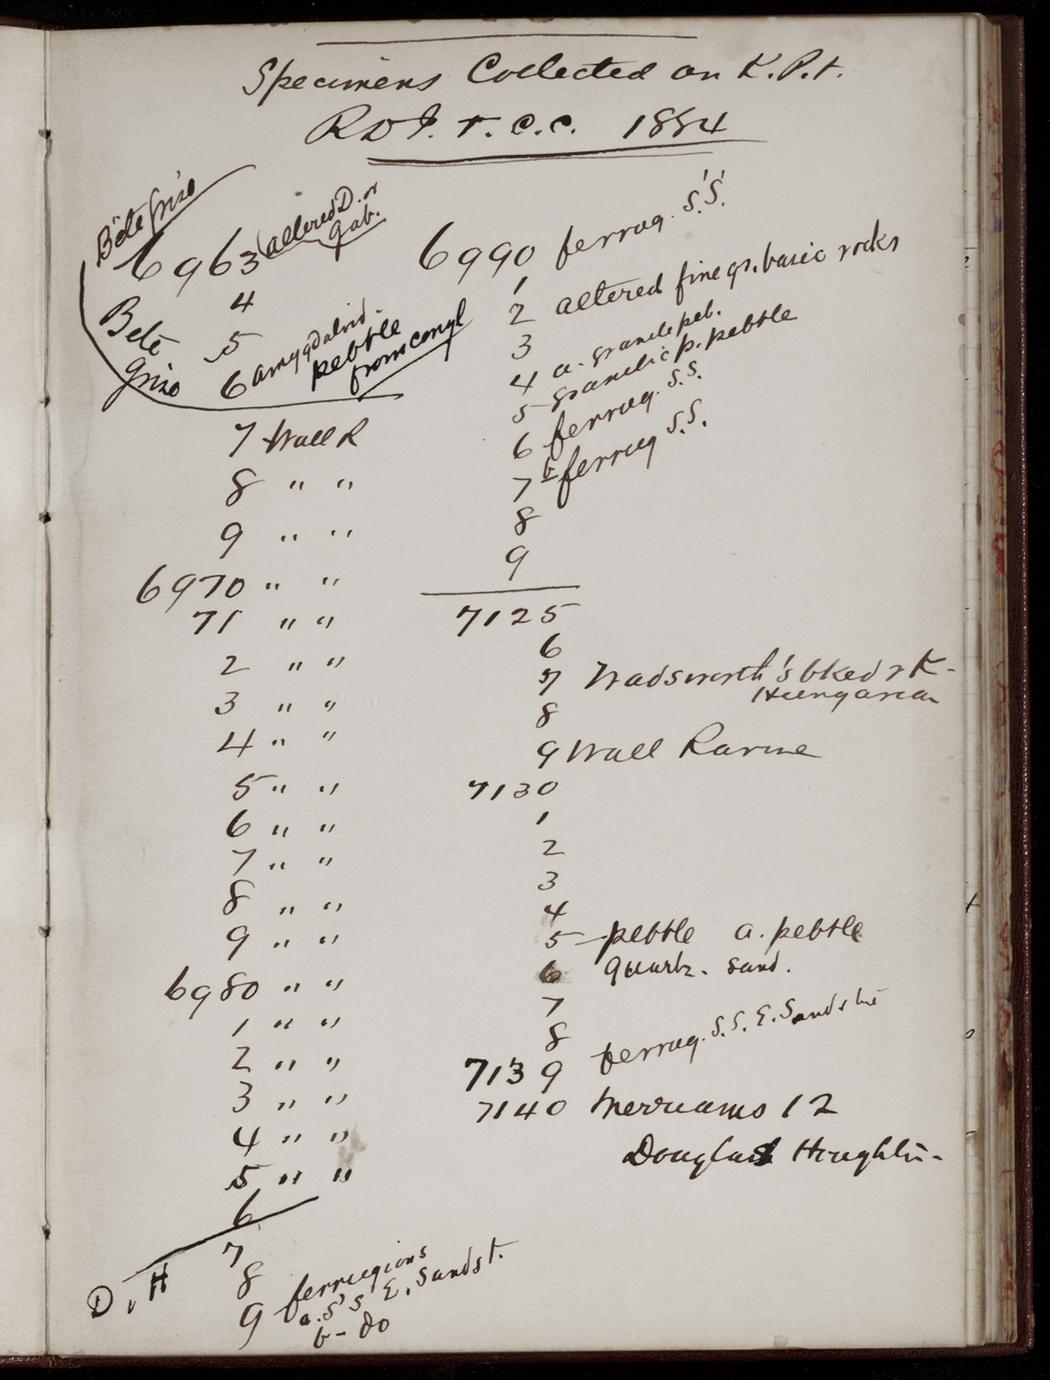 Specimens Collected on K. P. t.
R D I. r. C. C. 1884
Bête Grise
6963 altered D. or
gab.
4
Bete
Grise
5
6 amygdaloid.
pebble
from congl
7 Wall R
8 " "
9 " "
6970 " "
71 " "
2 " "
3 " "
4 " "
5 " "
6 " "
7 " "
8 " "
9 " "
6980 " "
1 " "
2 " "
3 " "
4 " "
5 " "
6
7
D. H
8
9 ferrugions
a. S. S. E. Sandst.
b - do
6990 ferrug. S. S.
1
2 altered fine gr. basic rocks
3
4 a. granite peb.
5 granitic p. pebble
6 ferrug. S. S.
7 b ferrug S. S.
8
9
7125
6
7 Wadsworth's bked r K-
Hungarian
8
9 Wall Ravine
7130
1
2
3
4
5 - pebble a. pebble
6 quartz. sand.
7
8
7139 ferrug. S. S. E. Sandstne
7140 Merriams 12
Douglas Houghton